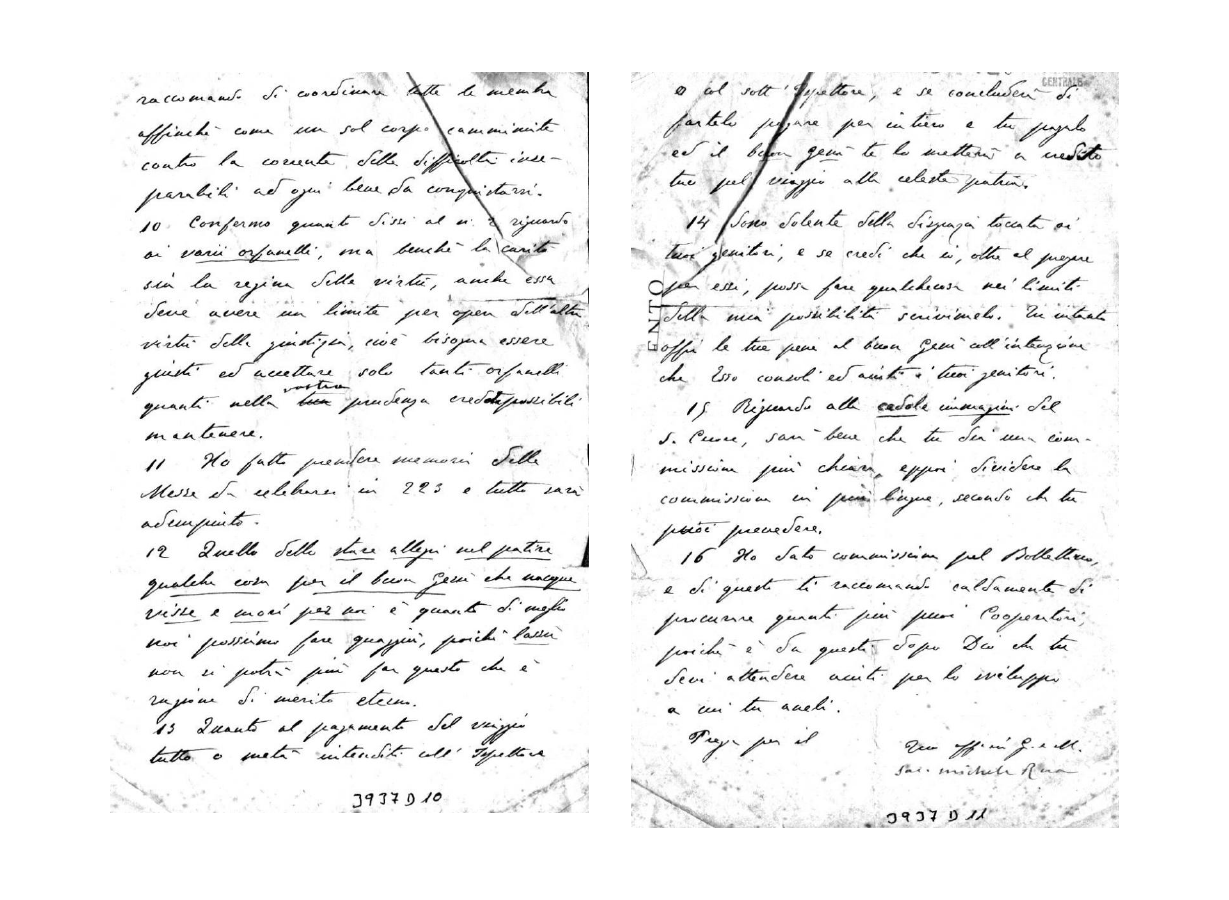 raccomando di coordinare tutte le membra
affinchè come un sol corpo camminiate
contro la corrente delle difficoltà inse-
parabili ad ogni bene da conquistarsi.
10 Confermo quanto dissi al n. 2 riguardo
ai varii orfanelli, ma benchè la carità
sia la regina delle virtù, anche essa
deve avere un limite per opera dell'altra
virtù della giustizia, cioè bisogna essere
giusti ed accettare solo tanti orfanelli
vostra
quanti nella tua prudenza possibili
mantenere.
11 Ho fatto prendere memoria delle
Messe da celebrarsi in 223 e tutto sarà
adempiuto.
12 Quello dello stare allegri nel patire
qualche cosa per il buon Gesù che nacque
visse e morì per noi è quanto di meglio
noi possiamo fare quaggiù, poichè lassù
non si potrà più far questo che è
ragione di merito eterno.
13 Quanto al pagamento del viaggio
tutto o metà intenditi coll' Ispettore
3937 D 10
CENTRALE
o al sott' Ispettore, e se concluderà di
fartelo pagare per intiero e tu pagalo
ed il buon Gesù te lo metterà a credito
tuo pel viaggio alla celeste patria.
14 Sono dolente della disgrazia toccata ai
tuoi genitori, e se credi che io, oltre al pregare
per essi, possa fare qualchecosa nei limiti
della mia possibilità scrivimelo. Tu intanto
offri le tue pene al buon Gesù coll'intenzione
che Esso consoli ed aiuti i tuoi genitori.
ENTO
15 Riguardo alle immagini del
S. Cuore, sarà bene che tu dia una com-
missione più chiara, eppoi dividere la
commissione in più lingue, secondo che tu
puoi prevedere.
16 Ho dato commissione pel Bollettino,
e di questo ti raccomando caldamente di
procurare quanti più puoi Cooperatori,
poichè è da questi dopo Dio che tu
devi attendere aiuti per lo sviluppo
a cui tu aneli.
Prega per il
Tuo aff.mo in G. e M.
Sac. Michele Rua
3937 D 11